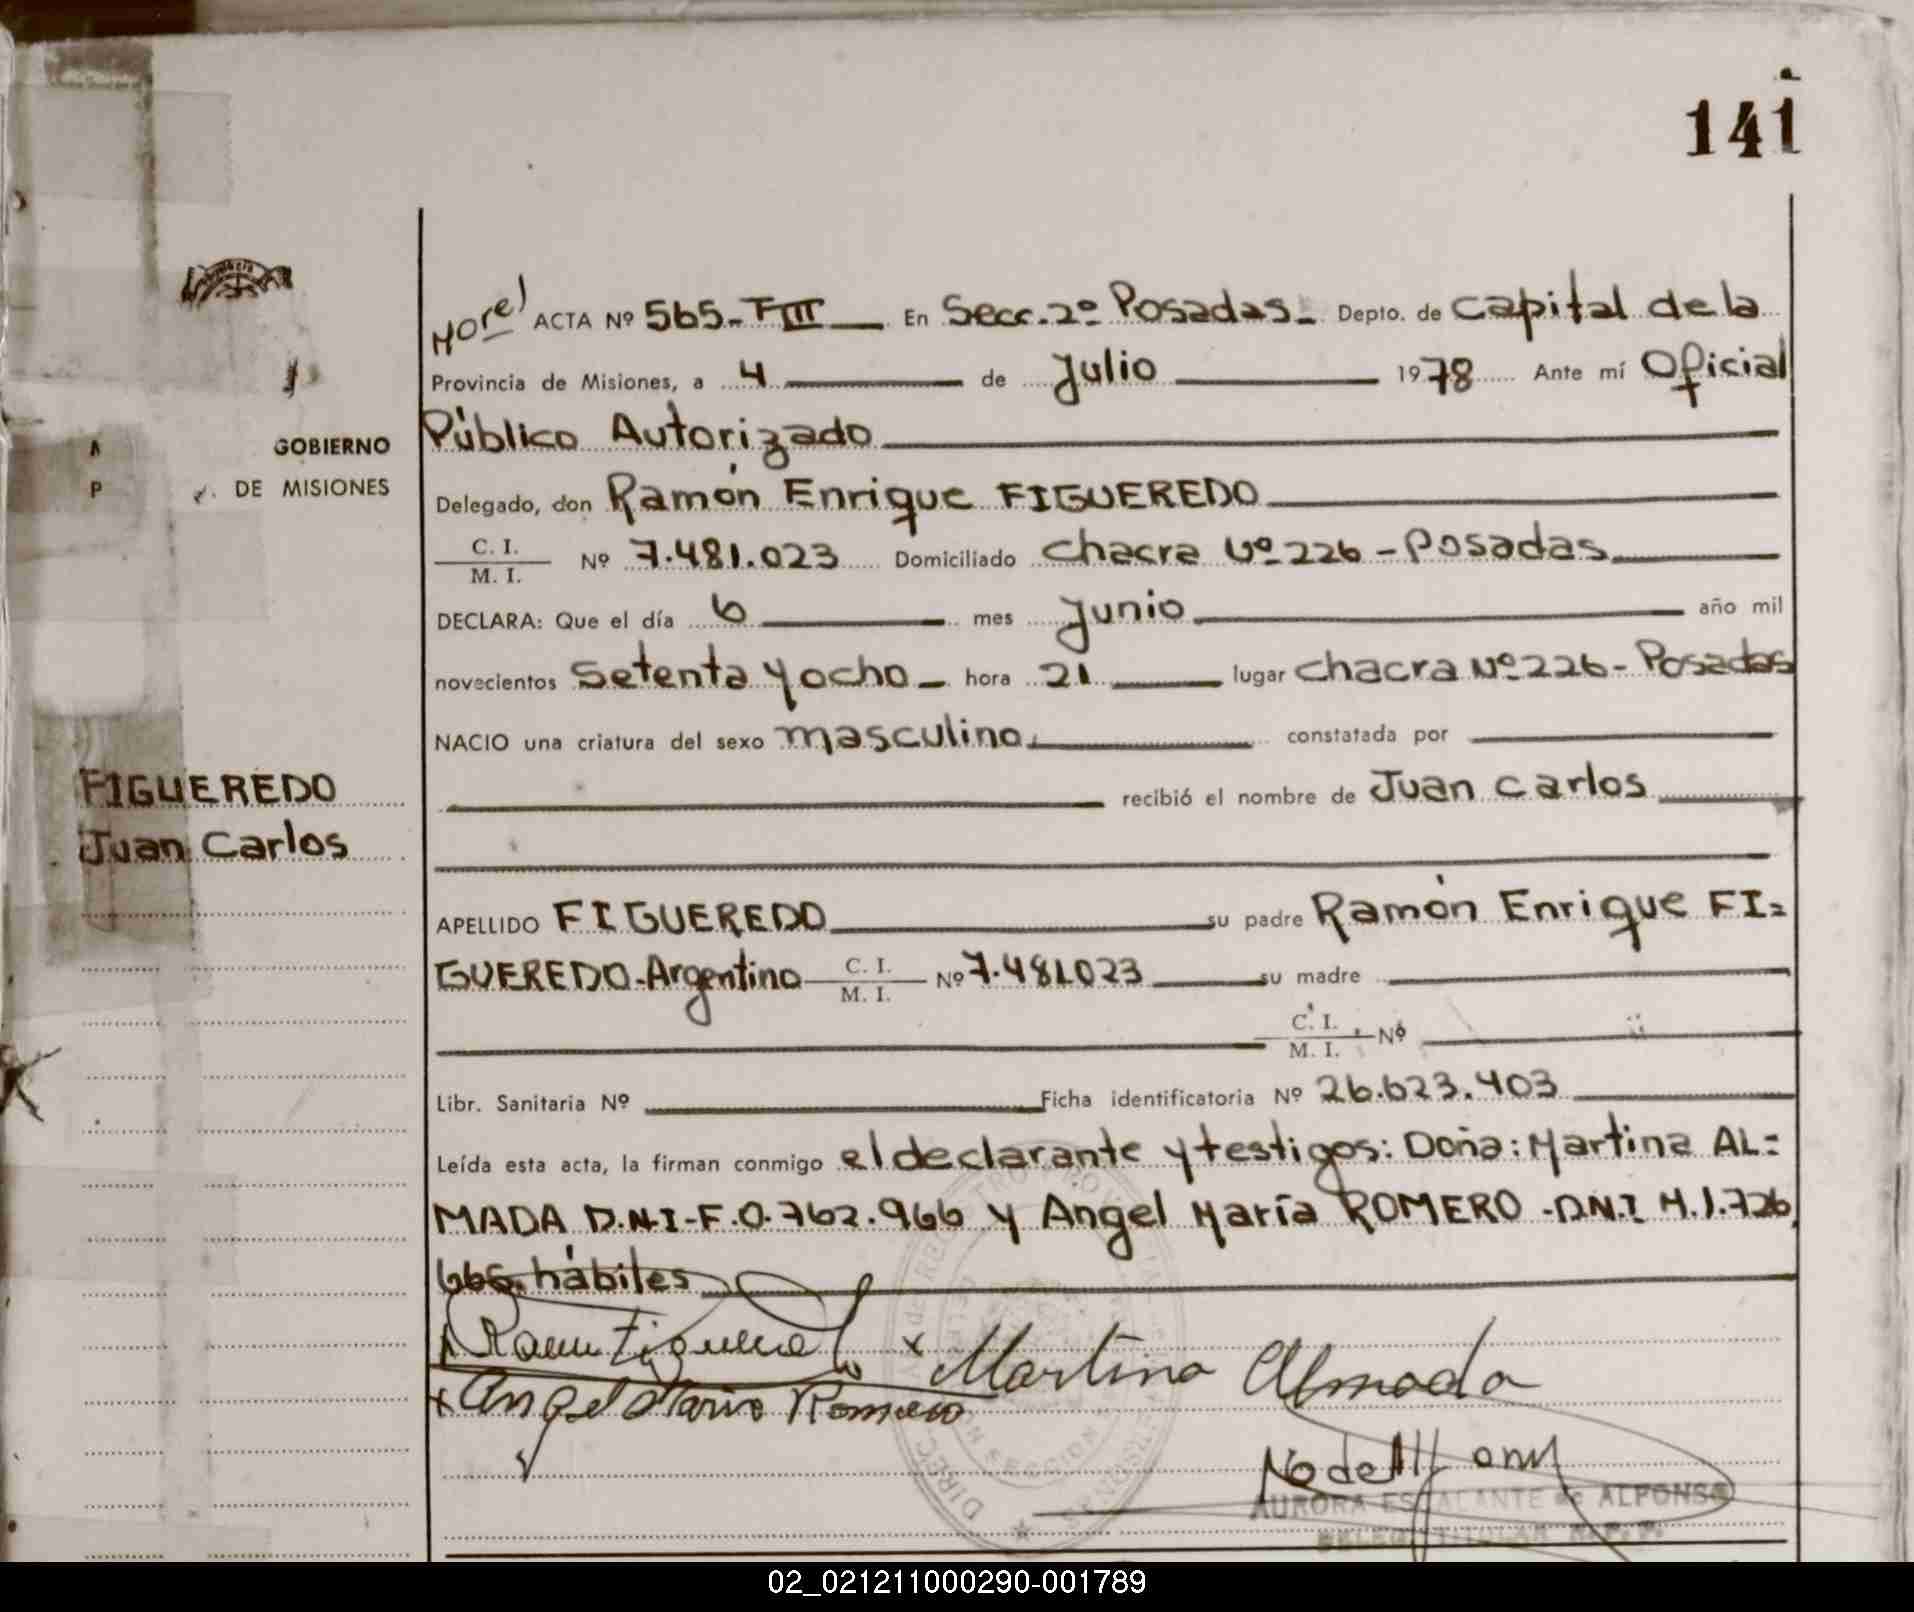 141
Morel ACTA Nº 565-TIII En Secc. 2º Posadas- Depto. de Capital de la
Provincia de Misiones, a 4 de Julio 1978 Ante mí Oficial
Público Autorizado
GOBIERNO
DE MISIONES
A
P
Delegado, don Ramón Enrique FIGUEREDO
C. I.
M. I. Nº 7.481.023 Domiciliado Chacra Nº 226 - Posadas
DECLARA: Que el día 6 mes Junio año mil
novecientos Setenta y ocho hora 21 lugar Chacra Nº 226 - Posadas
NACIO una criatura del sexo masculino constatada por
recibió el nombre de Juan Carlos
FIGUEREDO
Juan Carlos
APELLIDO FIGUEREDO su padre Ramón Enrique FI=
GUEREDO-Argentino C. I.
M. I. Nº 7.481.023 su madre
C. I.
M. I. Nº
Libr. Sanitaria Nº Ficha identificatoria Nº 26.623.403
Leída esta acta, la firman conmigo el declarante y testigos: Doña: Martina AL=
MADA D.N.I-F.0.762.966 y Angel María ROMERO -D.N.I M.1.726
666. hábiles
x Martina Almada
x Angel Maria Romero
AURORA ESCALANTE de ALFONSO
02_021211000290-001789